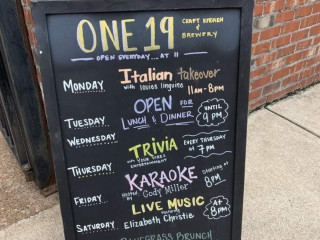 ONE 19 CRAFT KITCHEN & BREWERY
OPEN EVERYDAY... AT 11
MONDAY Italian takeover
with louies linguine 11AM-8PM
OPEN FOR UNTIL
TUESDAY LUNCH & DINNER 9 PM
WEDNESDAY TRIVIA EVERY THURSDAY
WITH YOUR VIBES AT 7PM
ENTERTAINMENT
THURSDAY KARAOKE Starting at
Hosted by Cody Miller 8PM
FRIDAY LIVE MUSIC AT
featuring 8PM
SATURDAY Elizabeth Christie
BLUEGRASS BRUNCH